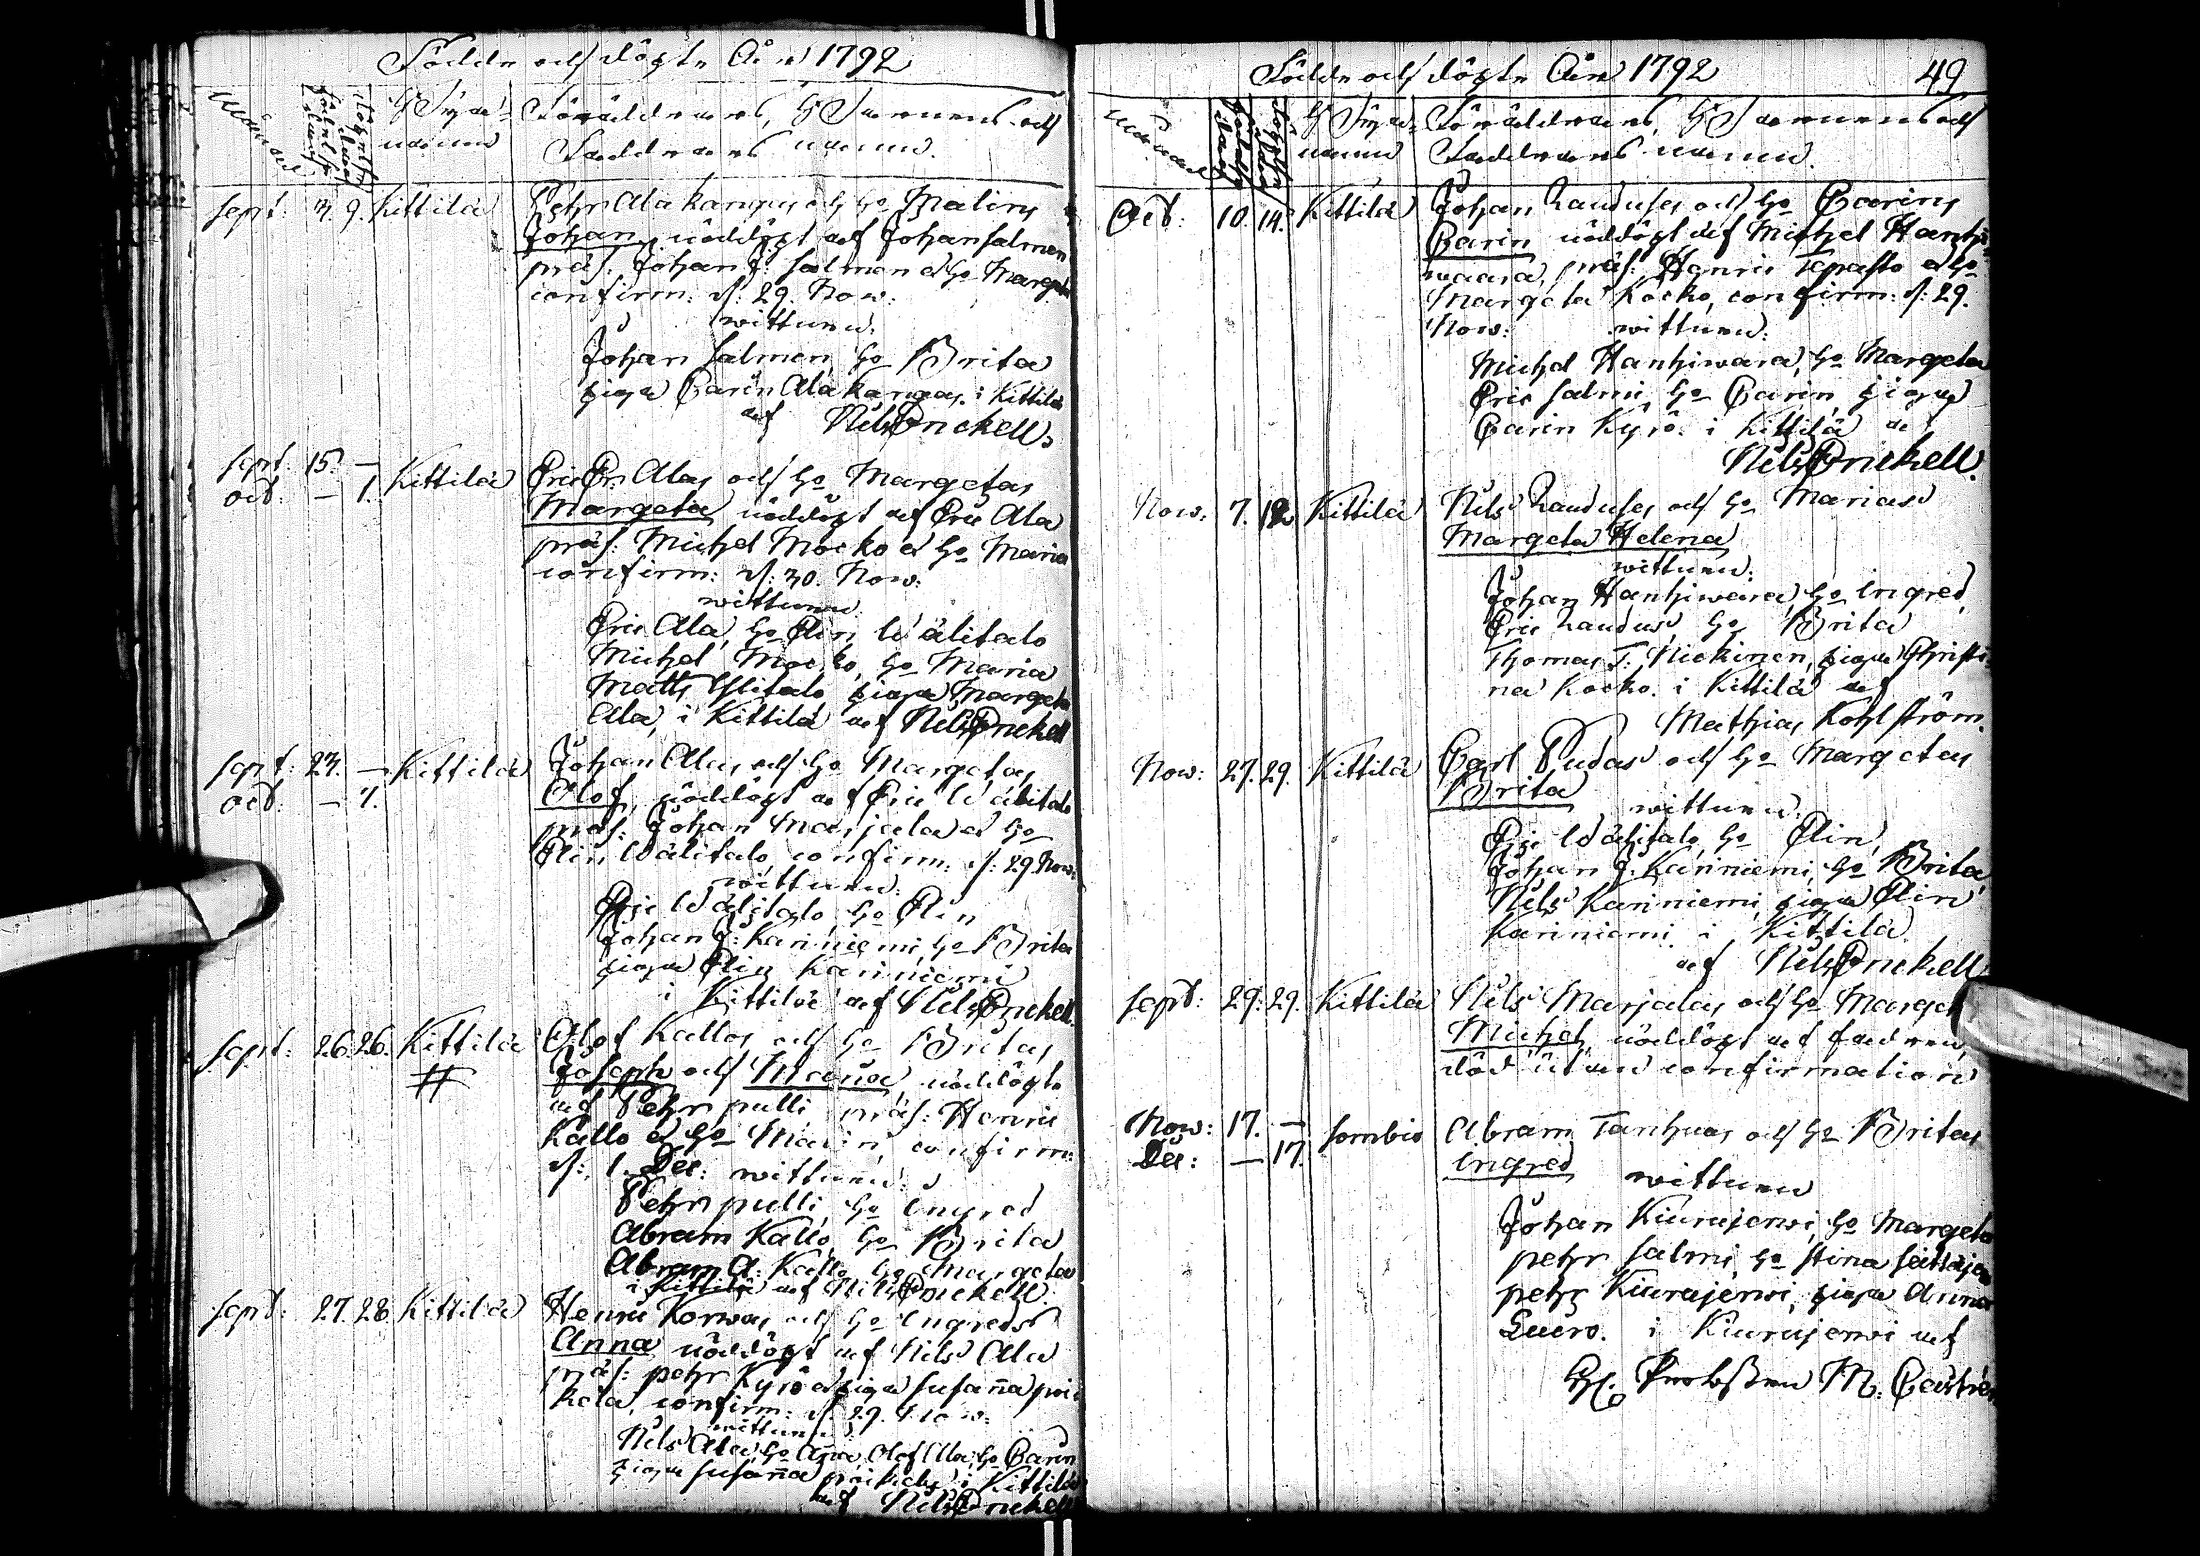 Födde och döpte Året 1792
Månad
Födelse dag
Döpelse dag
Byanamn
Föräldrarnes, Barnens och
Faddrarnes namn.
Sept: 3. 9. Kittilä Pehr Alakangas och ho Malins
Johan, nöddöpt af Johan Salmen
præs: Johan J: Salmen et ho Margeta
confirm: d: 29. Now:
wittnen:
Johan Salmen, ho Brita
piga Carin Alakangas i Kittilä
af Nils Enckell.
Sept: 15. — Kittilä Eric Er: Alas och ho Margetas
Oct: — 1.
Margeta nöddöpt af Eric Ala
præs: Michel Mocko et ho Maria
confirm: d: 30. Now:
wittnen
Eric Ala, ho Elin Wälitalo
Michel Mocko, ho Maria
Matts Ylitalo piga Margeta
Ala, i Kittilä af Nils Enckell
Sept: 23. — Kittilä Johan Alas och ho Margetas
Oct: — 7.
Olof, nöddöpt af Eric Wälitalo
præs: Johan Marjala et ho
Elin Wälitalo, confirm: d: 29 Now:
wittnen:
Eric Wälitalo, ho Elin
Johan J: Kariniemi, ho Brita
piga Elin Kariniemi
i Kittilä af Nils Enckell.
Sept: 26. 26. Kittilä Olof Kallos och ho Britas
Joseph och Maria nöddöpte
af Pehr Pulli præs: Henric
Kallo et ho Malin, confirm:
d: 1. Dec: wittnen:
Pehr Pulli, ho Ingred
Abram Kallo, ho Brita
Abram A: Kallo ho Margeta
i Kittilä af Nils Enckell.
Sept: 27. 28. Kittilä Henric Korwas och ho Ingreds
Anna nöddöpt af Nils Ala
præs: Pehr Kyrö et piga Susaña
confirm: d: 29. Now:
wittnen
Nils Ala ho Aña, Olof Ala, ho Carin
piga Susaña i Kittilä
af Nils Enckell
Födde och döpte Året 1792 49
Månad
Födelse dag
Döpelse dag
Byanamn
Föräldrarnes, Barnens och
Faddrarnes namn.
Oct: 10. 14. Kittilä Johan Laudus och ho Carins
Carin nöddöpt af Michel Hanhi
waara, præs: Henric et ho
Margeta Kocko, confirm: d: 29.
Now: wittnen:
Michel Hanhiwara, ho Margeta
Eric Salmi, ho Carin, piga
Carin Kyrö i Kittilä af
Nils Enckell.
Now: 7. 12 Kittilä Nils Laudus och ho Marias
Margeta Helena
wittnen:
Johan Hanhiwara, ho Ingred,
Eric Laudus ho Brita
Thomas T: Nickinen, piga Christi
na Kocko. i Kittilä af
Mathias Kohlström.
Now: 27. 29. Kittilä Carl Pudas och ho Margetas
Brita wittnen:
Eric Wälitalo, ho Elin,
Johan J. Kariniemi, ho Brita
Nils Kariniemi, piga Elin
Kariniemi i Kittilä
af Nils Enckell
Sept: 29. 29. Kittilä Nils Marjalas och ho Marget
Michel, nöddöpt af fadren,
död utan confirmation
Now: 17. — Sombio Abram Tanhuas och ho Britas
Dec: — 17.
Ingred wittnen
Johan Kiurujerwi, ho Margeta
Pehr Salmi, ho Stina
Pehr Kiurujerwi, piga Anna
i Kiurujerwi af
H. Probsten M. Castrén